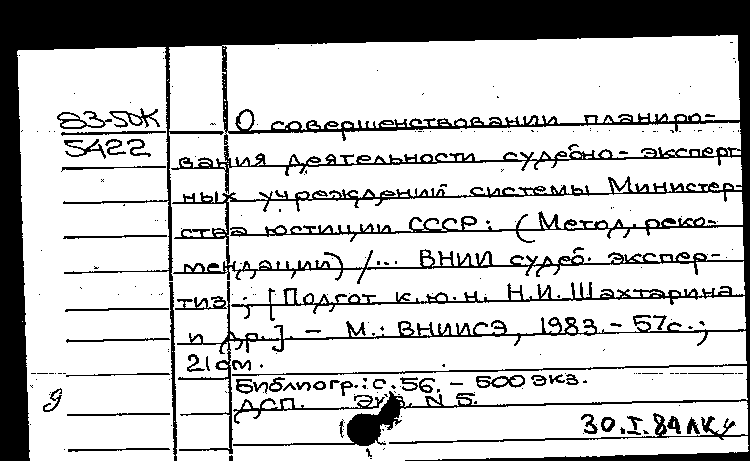 83-50К
5422
О совершенствовании планиро-
вания деятельности судебно-эксперт
ных учреждений системы Министер-
ства юстиции СССР: (Метод. реко-
мендации) /... ВНИИ судеб. экспер-
тиз ; [Подгот. к.ю.н. Н.И. Шахтарина
и др.]. – М.: ВНИИСЭ, 1983. – 57с.;
21см.
Библиогр.: с. 56. – 500 экз.
ДСП. Экз. N 5.
9
30.I.84